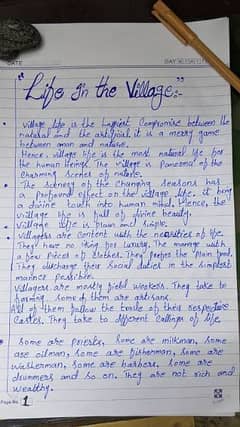 DATE
DAY
"Life In the Village":-
• village life is the happiest compromise between the
natural and the artificial it is a merry game
between man and nature.
Hence, village life is the most natural life for
the human beings. The village is Panorama of the
charming scenes of nature.
• The scenery of the changing seasons has
a profound effect on the village life. it bring
a divine touch into human mind. Hence, the
village life is full of divine beauty.
• Village life is plain and simple.
• Villagers are content with the necessities of life.
They have no liking for luxury. The manage with
a few Pieces of clothes. They prefer the Plain food.
They discharge their Social duties in the simplest
manner Possible.
Villagers are mostly field workers. They take to
farming. some of them are artisans.
All of them follow the trade of their respective
Castes. They take to different Callings of life.
• Some are priests, Some are milkman, some
are oilman, some are fisherman, Some are
washerman, some are barbers, Some are
drummers and so on. They are not rich and
wealthy.
Page No. 1